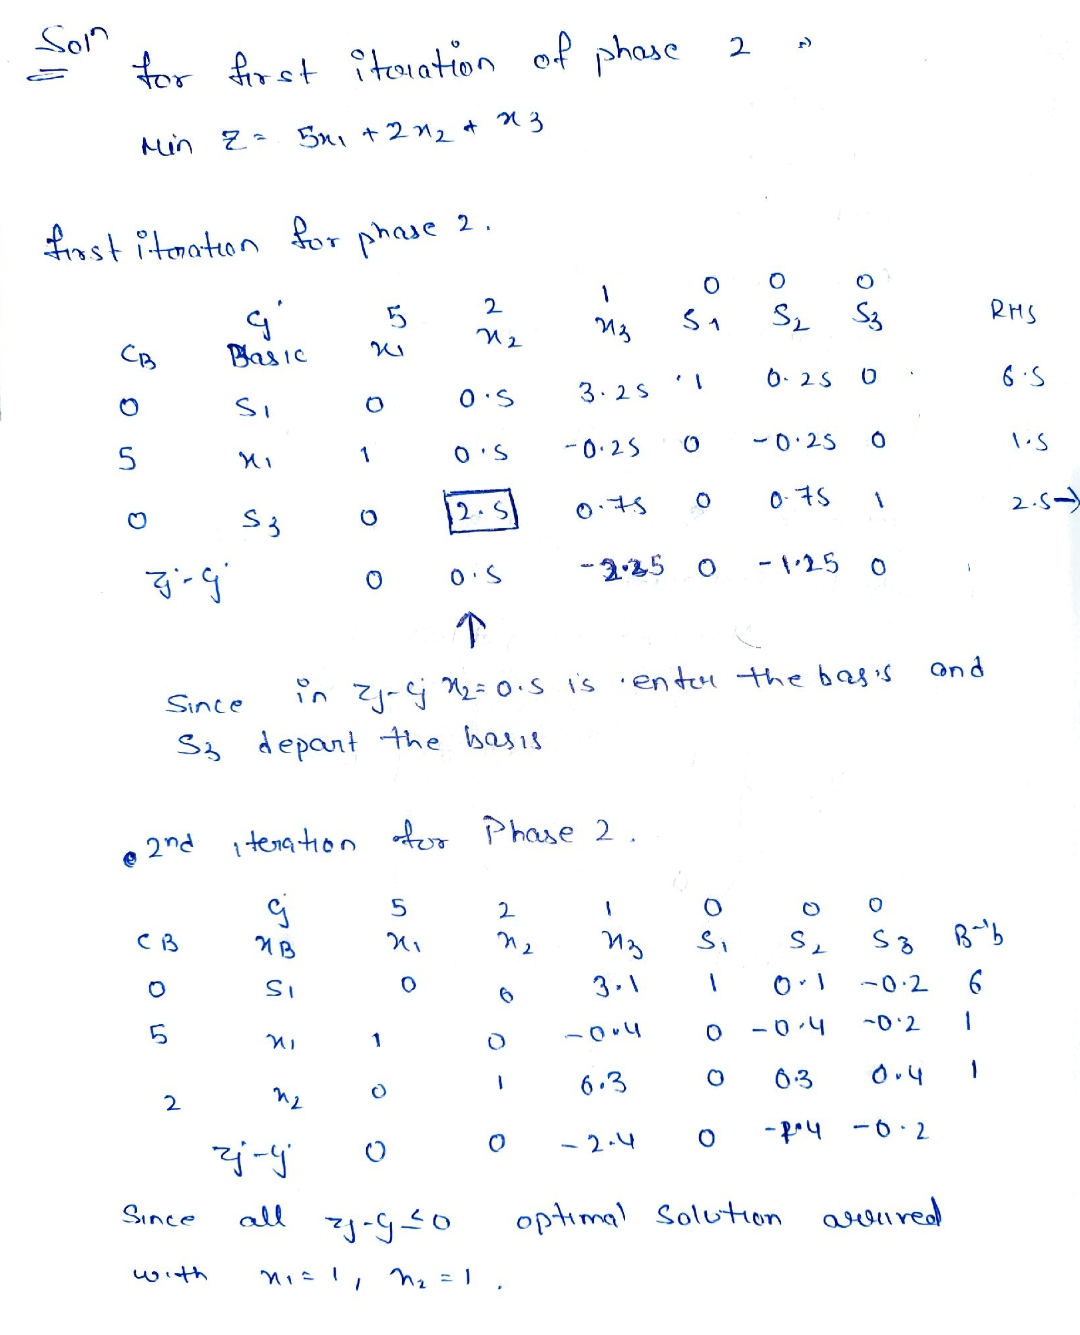 Soln
for first iteration of phase 2 ⇒
Min Z = 5x1 + 2x2 + x3
first iteration for phase 2.
Cj 5 2 1 0 0 0
CB Basic x1 x2 x3 S1 S2 S3 RHS
0 S1 0 0.5 3.25 1 0.25 0 6.5
5 x1 1 0.5 -0.25 0 -0.25 0 1.5
0 S3 0 2.5 0.75 0 0.75 1 2.5→
zj-cj 0 0.5 -2.25 0 -1.25 0
↑
Since in zj-cj x2=0.5 is enter the basis and
S3 depart the basis
2nd iteration for Phase 2.
cj 5 2 1 0 0 0
CB xB x1 x2 x3 S1 S2 S3 B⁻¹b
0 S1 0 0 3.1 1 0.1 -0.2 6
5 x1 1 0 -0.4 0 -0.4 -0.2 1
2 x2 0 1 0.3 0 0.3 0.4 1
zj-cj 0 0 -2.4 0 -1.4 -0.2
Since all zj-cj ≤ 0 optimal solution
with x1=1, x2=1.